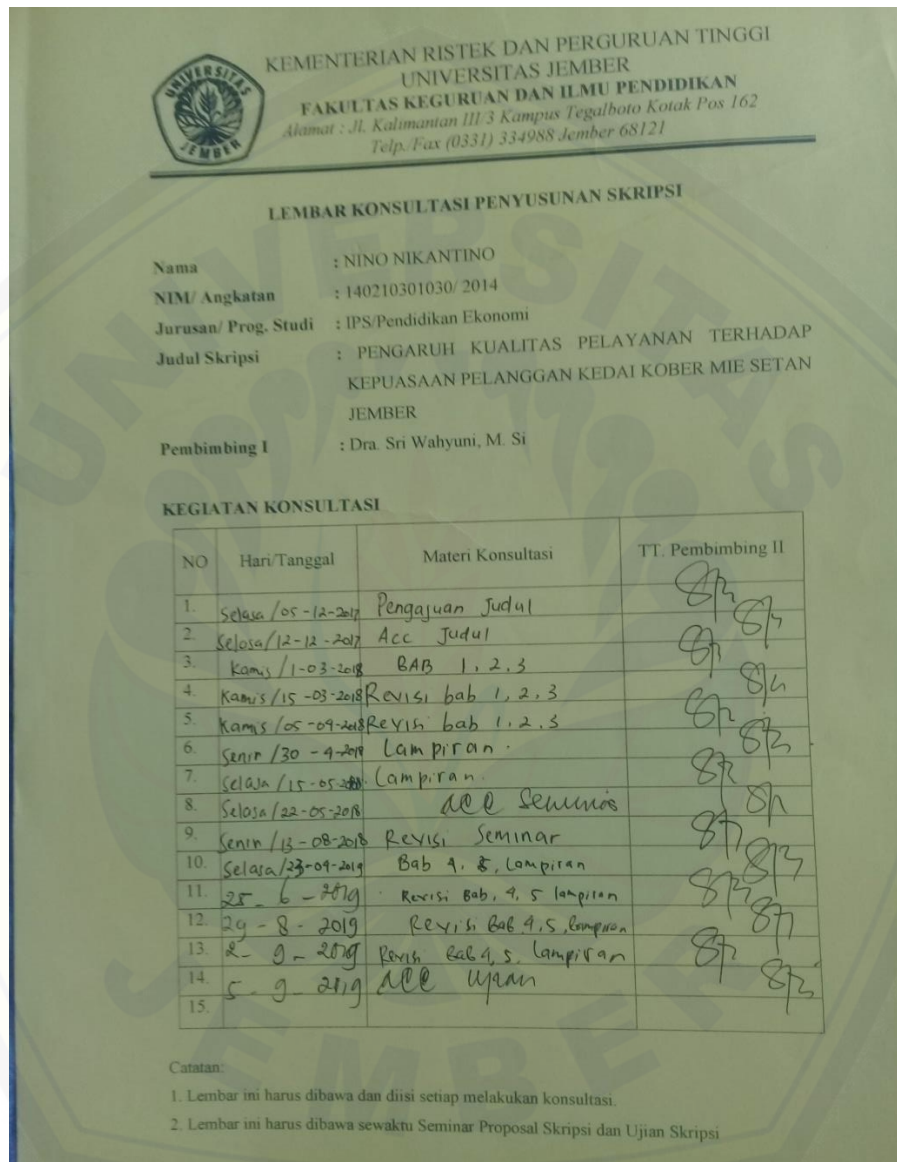 KEMENTERIAN RISTEK DAN PERGURUAN TINGGI
UNIVERSITAS JEMBER
FAKULTAS KEGURUAN DAN ILMU PENDIDIKAN
Alamat : Jl. Kalimantan III/3 Kampus Tegalboto Kotak Pos 162
Telp./Fax (0331) 334988 Jember 68121
UNIVERSITAS
JEMBER
LEMBAR KONSULTASI PENYUSUNAN SKRIPSI
Nama : NINO NIKANTINO
NIM/ Angkatan : 140210301030/ 2014
Jurusan/ Prog. Studi : IPS/Pendidikan Ekonomi
Judul Skripsi : PENGARUH KUALITAS PELAYANAN TERHADAP
KEPUASAAN PELANGGAN KEDAI KOBER MIE SETAN
JEMBER
Pembimbing I : Dra. Sri Wahyuni, M. Si
KEGIATAN KONSULTASI
NO Hari/Tanggal Materi Konsultasi TT. Pembimbing II
1. Selasa / 05 -12-2017 Pengajuan Judul
2. Selasa / 12-12-2017 Acc Judul
3. Kamis / 1-03-2018 BAB 1, 2, 3
4. Kamis / 15 -03-2018 Revisi bab 1, 2, 3
5. Kamis / 05 -04-2018 Revisi bab 1, 2, 3
6. Senin / 30 - 4- Lampiran.
7. Selasa / 15-05- Lampiran.
8. Selasa / 22-05-2018 ACC Seminar
9. Senin / 13 -08-2018 Revisi Seminar
10. Selasa / 23-04-2019 Bab 4, 5, Lampiran
11. 25 - 6 - 2019 Revisi Bab, 4, 5 lampiran
12. 29 - 8 - 2019 Revisi Bab 4, 5, lampiran
13. 2 - 9 - 2019 Revisi Bab 4, 5, Lampiran
14. 5 - 9 - 2019 ACC ujian
15.
Catatan:
1. Lembar ini harus dibawa dan diisi setiap melakukan konsultasi.
2. Lembar ini harus dibawa sewaktu Seminar Proposal Skripsi dan Ujian Skripsi
UNIVERSITAS
JEMBER